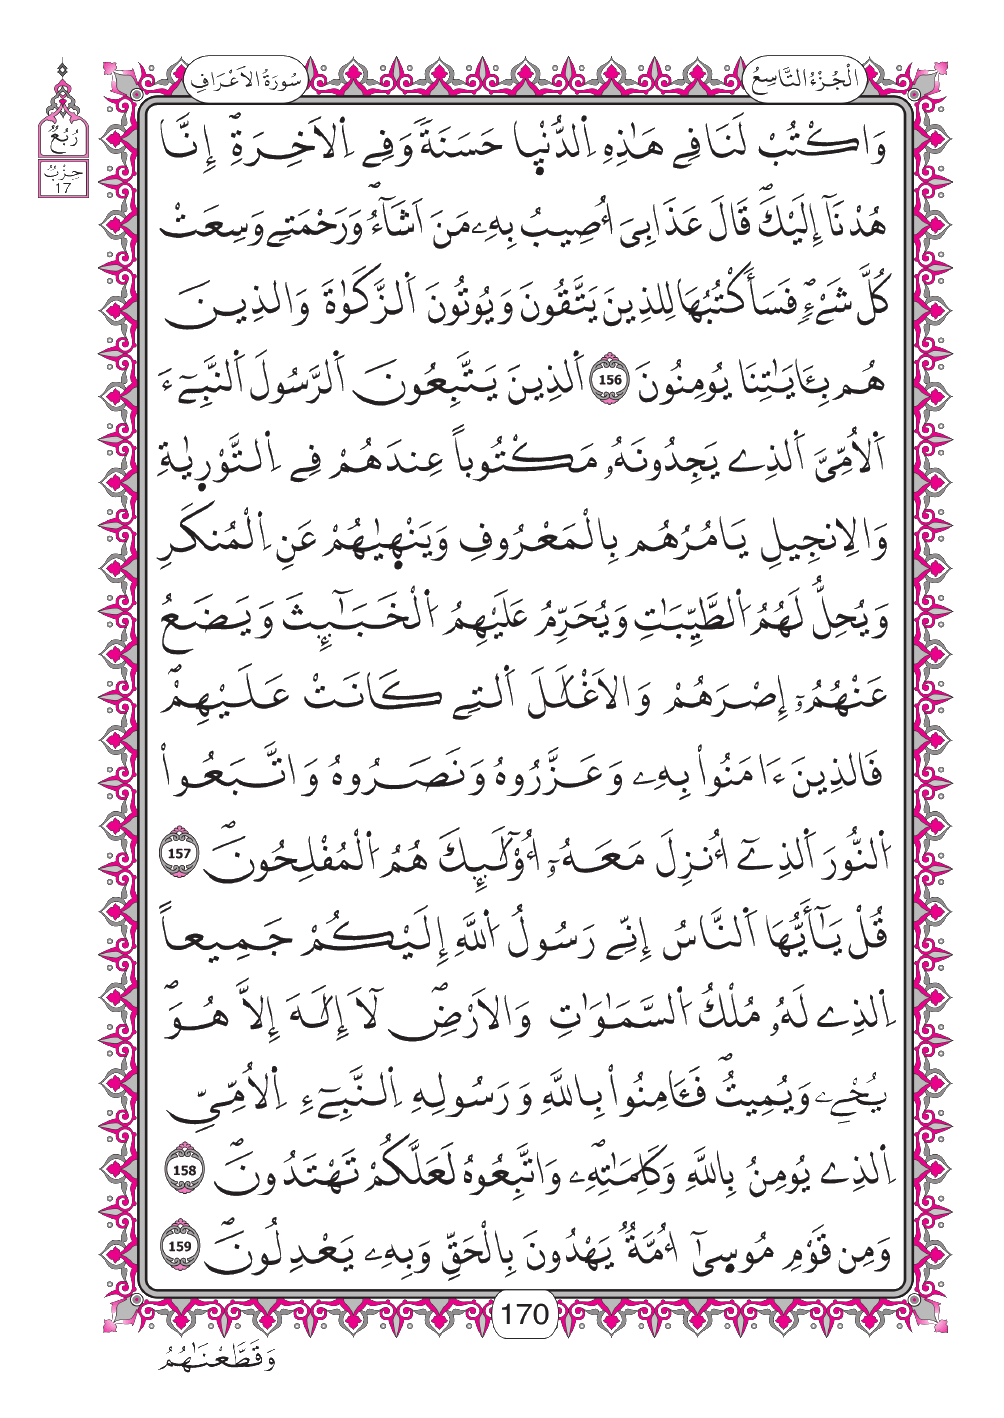 الْجُزْءُ التَّاسِعُ
سُورَةُ الَاعْرَافِ
رُبُعُ
حِزْبُ
17
وَاكْتُبْ لَنَا فِے هَٰذِهِ اِ۬لدُّنْي۪ا حَسَنَةٗ وَفِے اِ۬لَاخِرَةِۖ إِنَّا
هُدْنَآ إِلَيْكَۖ قَالَ عَذَابِيَ أُصِيبُ بِهِۦ مَنَ اَشَآءُۖ وَرَحْمَتِے وَسِعَتْ
كُلَّ شَےْءٖۖ فَسَأَكْتُبُهَا لِلذِينَ يَتَّقُونَ وَيُوتُونَ اَ۬لزَّكَوٰةَ وَالذِينَ
هُم بِـَٔايَٰتِنَا يُومِنُونَ 156 اَ۬لذِينَ يَتَّبِعُونَ اَ۬لرَّسُولَ اَ۬لنَّبِےٓءَ
اَ۬لُامِّيَّ اَ۬لذِے يَجِدُونَهُۥ مَكْتُوباً عِندَهُمْ فِے اِ۬لتَّوْر۪يٰةِ
وَالِانجِيلِ يَامُرُهُم بِالْمَعْرُوفِ وَيَنْه۪يٰهُمْ عَنِ اِ۬لْمُنكَرِ
وَيُحِلُّ لَهُمُ اُ۬لطَّيِّبَٰتِ وَيُحَرِّمُ عَلَيْهِمُ اُ۬لْخَبَٰٓئِثَ وَيَضَعُ
عَنْهُمُۥٓ إِصْرَهُمْ وَالَاغْلَٰلَ اَ۬لتِے كَانَتْ عَلَيْهِمْۖ
فَالذِينَ ءَامَنُواْ بِهِۦ وَعَزَّرُوهُ وَنَصَرُوهُ وَاتَّبَعُواْ
اُ۬لنُّورَ اَ۬لذِےٓ أُنزِلَ مَعَهُۥٓ أُوْلَٰٓئِكَ هُمُ اُ۬لْمُفْلِحُونَۖ 157
قُلْ يَٰٓأَيُّهَا اَ۬لنَّاسُ إِنِّے رَسُولُ اُ۬للَّهِ إِلَيْكُمْ جَمِيعاً
اِ۬لذِے لَهُۥ مُلْكُ اُ۬لسَّمَٰوَٰتِ وَالَارْضِۖ لَآ إِلَٰهَ إِلَّا هُوَۖ
يُحْيِۦ وَيُمِيتُۖ فَـَٔامِنُواْ بِاللَّهِ وَرَسُولِهِ اِ۬لنَّبِےٓءِ اِ۬لُامِّيِّ
اِ۬لذِے يُومِنُ بِاللَّهِ وَكَلِمَٰتِهِۦۖ وَاتَّبِعُوهُ لَعَلَّكُمْ تَهْتَدُونَۖ 158
وَمِن قَوْمِ مُوس۪ىٰٓ أُمَّةٞ يَهْدُونَ بِالْحَقِّ وَبِهِۦ يَعْدِلُونَۖ 159
170
وَقَطَّعْنَٰهُمُ